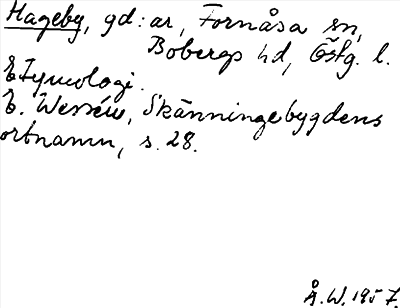 Hageby, gd:ar, Fornåsa sn,
Bobergs hd, Östg. l.
Etymologi.
E. Wessén, Skänningebygdens
ortnamn, s. 28.
Å.W. 1957.